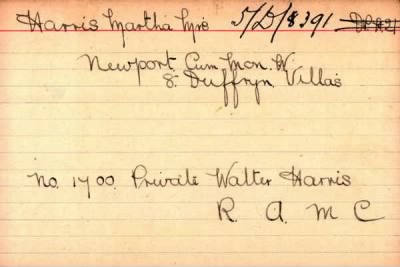 Harris Martha Mrs 5/D/8391
Newport. Cwm. Mon. W.
8. Duffryn Villas
No. 1700. Private Walter Harris
R. A. M C